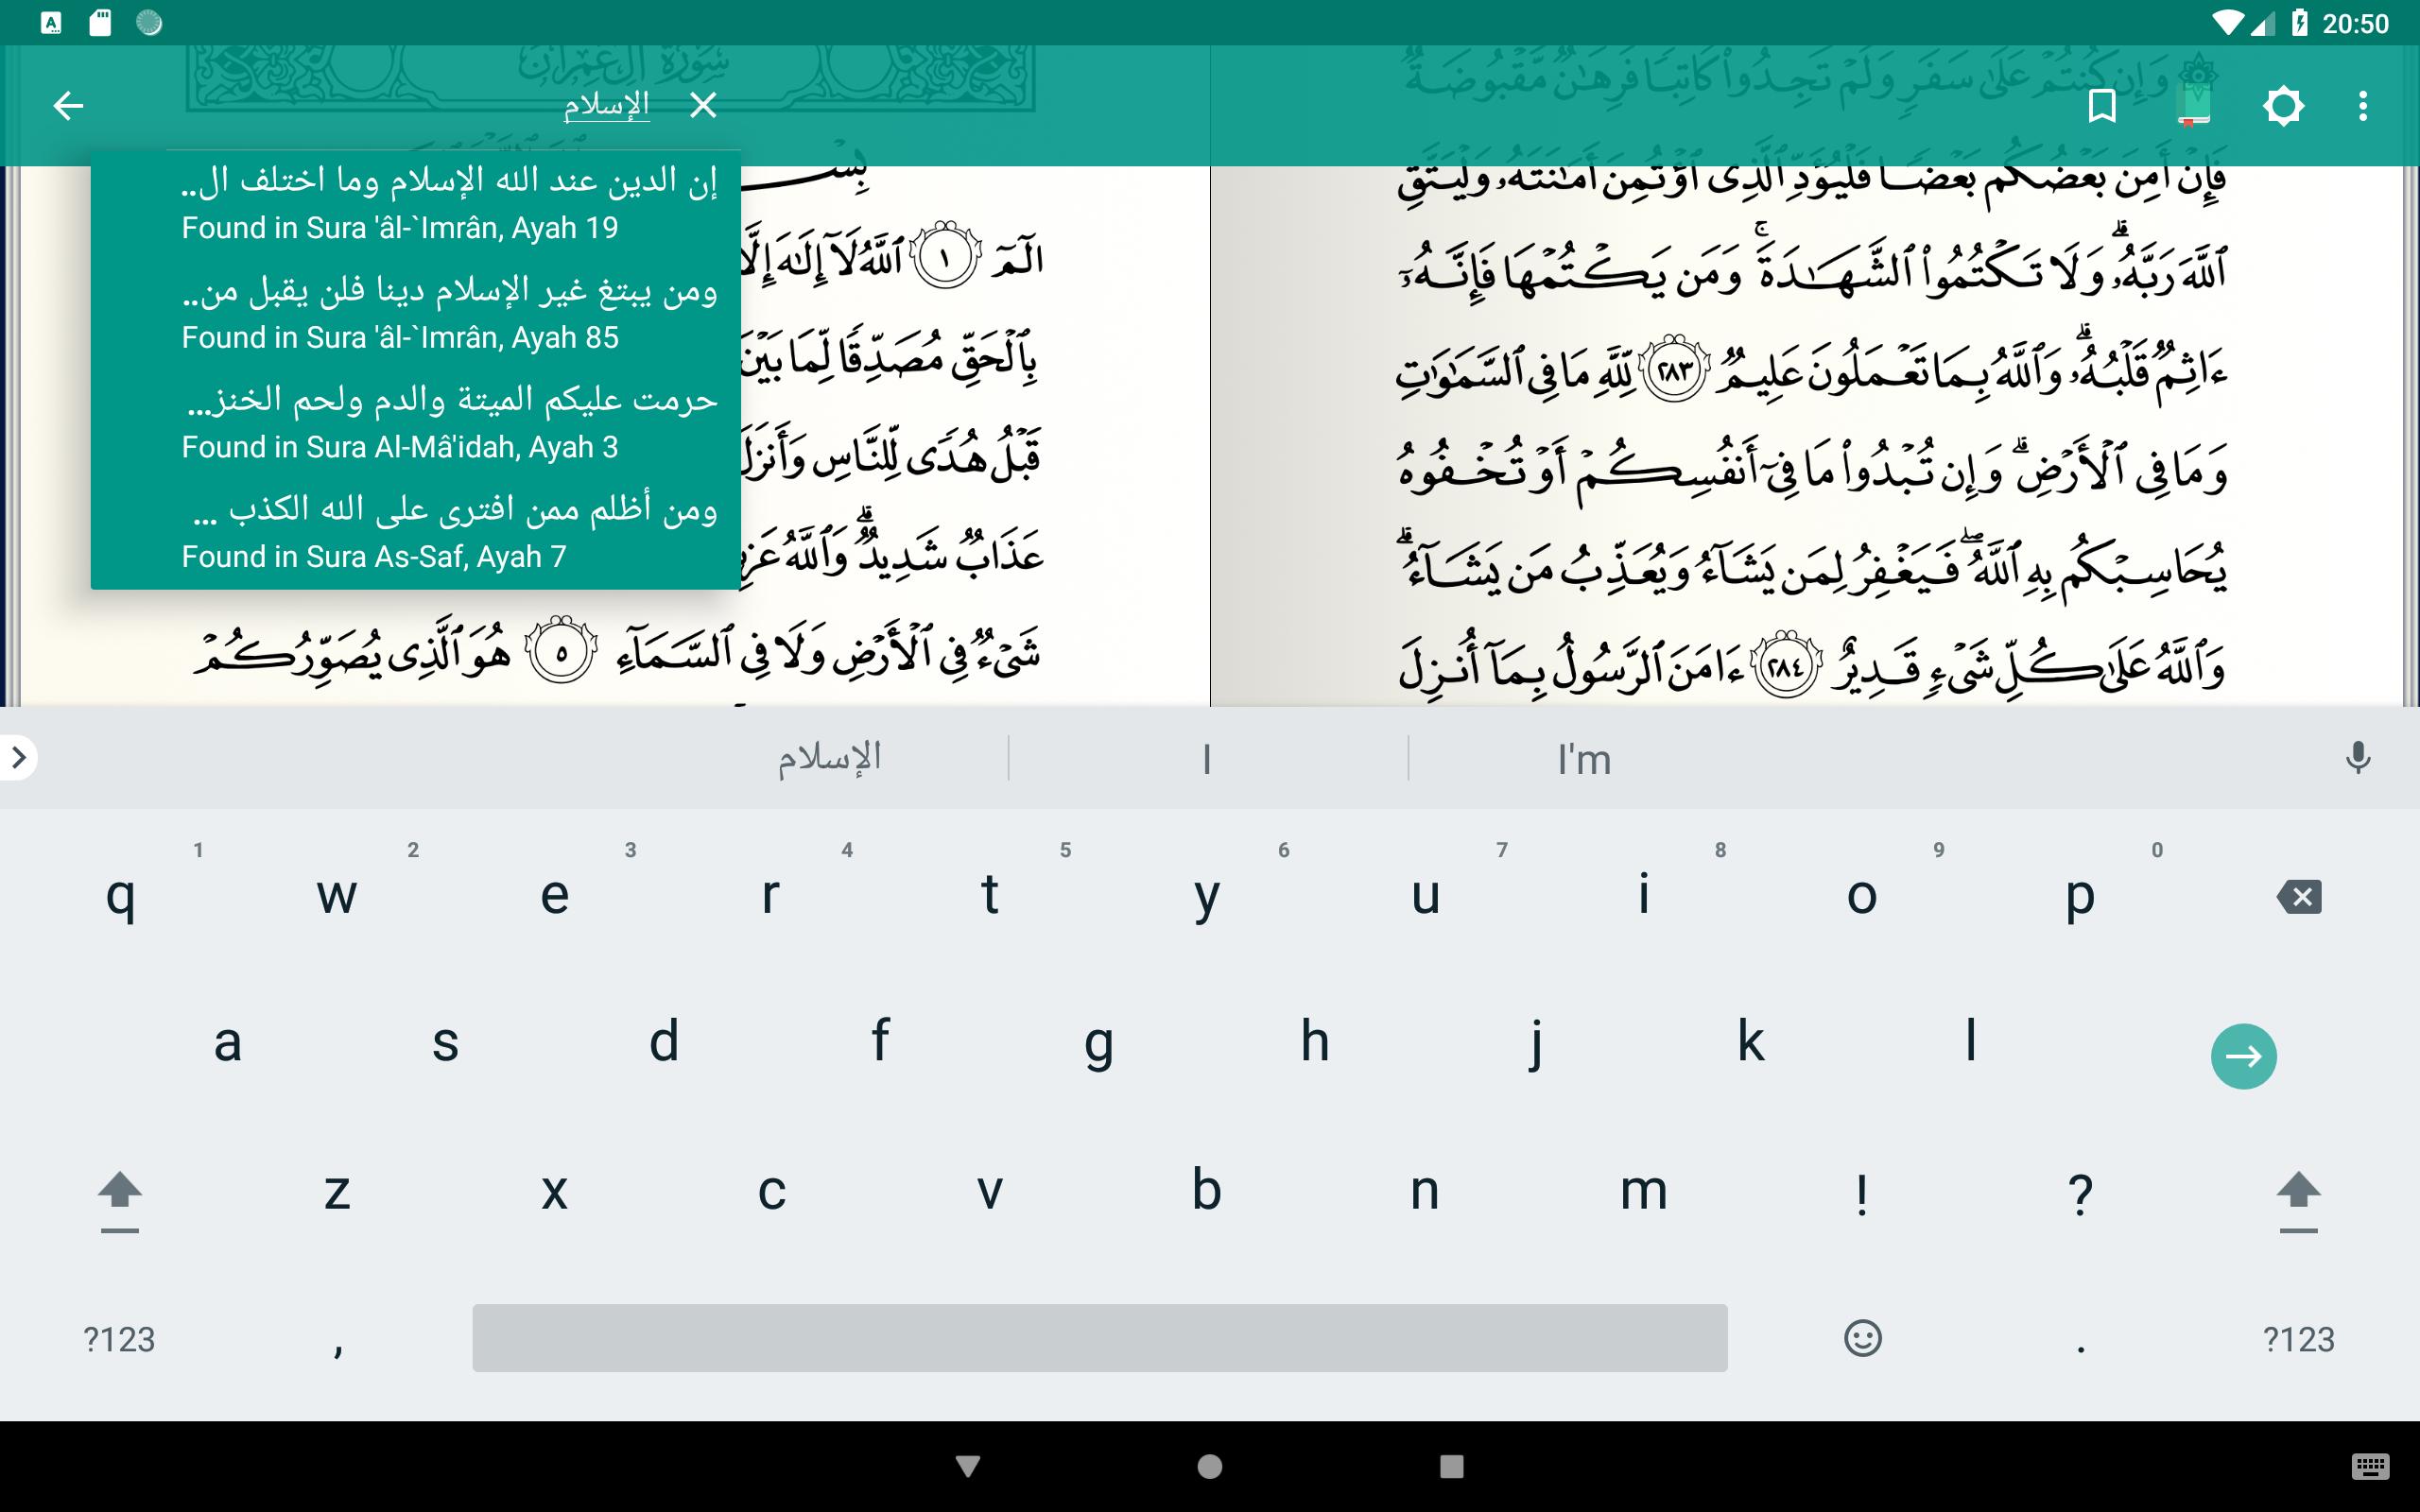 20:50
الإسلام
إن الدين عند الله الإسلام وما اختلف ال..
Found in Sura 'âl-`Imrân, Ayah 19
ومن يبتغ غير الإسلام دينا فلن يقبل من..
Found in Sura 'âl-`Imrân, Ayah 85
حرمت عليكم الميتة والدم ولحم الخنز...
Found in Sura Al-Mâ'idah, Ayah 3
ومن أظلم ممن افترى على الله الكذب ...
Found in Sura As-Saf, Ayah 7
وَإِن كُنتُمْ عَلَىٰ سَفَرٍ وَلَمْ تَجِدُوا۟ كَاتِبًا فَرِهَـٰنٌ مَّقْبُوضَةٌ
فَإِنْ أَمِنَ بَعْضُكُم بَعْضًا فَلْيُؤَدِّ ٱلَّذِى ٱؤْتُمِنَ أَمَـٰنَتَهُۥ وَلْيَتَّقِ
ٱللَّهَ رَبَّهُۥ ۗ وَلَا تَكْتُمُوا۟ ٱلشَّهَـٰدَةَ ۚ وَمَن يَكْتُمْهَا فَإِنَّهُۥٓ
ءَاثِمٌ قَلْبُهُۥ ۗ وَٱللَّهُ بِمَا تَعْمَلُونَ عَلِيمٌ ٢٨٣ لِّلَّهِ مَا فِى ٱلسَّمَـٰوَٰتِ
وَمَا فِى ٱلْأَرْضِ ۗ وَإِن تُبْدُوا۟ مَا فِىٓ أَنفُسِكُمْ أَوْ تُخْفُوهُ
يُحَاسِبْكُم بِهِ ٱللَّهُ ۖ فَيَغْفِرُ لِمَن يَشَآءُ وَيُعَذِّبُ مَن يَشَآءُ ۗ
وَٱللَّهُ عَلَىٰ كُلِّ شَىْءٍ قَدِيرٌ ٢٨٤ ءَامَنَ ٱلرَّسُولُ بِمَآ أُنزِلَ
سُورَةُ آلِ عِمْرَانَ
بِسْ
الٓمٓ ١ ٱللَّهُ لَآ إِلَـٰهَ إِلَّا
بِٱلْحَقِّ مُصَدِّقًا لِّمَا بَيْنَ
قَبْلُ هُدًى لِّلنَّاسِ وَأَنزَلَ
عَذَابٌ شَدِيدٌ ۗ وَٱللَّهُ عَزِ
شَىْءٌ فِى ٱلْأَرْضِ وَلَا فِى ٱلسَّمَآءِ ٥ هُوَ ٱلَّذِى يُصَوِّرُكُمْ
الإسلام I I'm
1 2 3 4 5 6 7 8 9 0
q w e r t y u i o p
a s d f g h j k l
z x c v b n m ! ?
?123 , . ?123